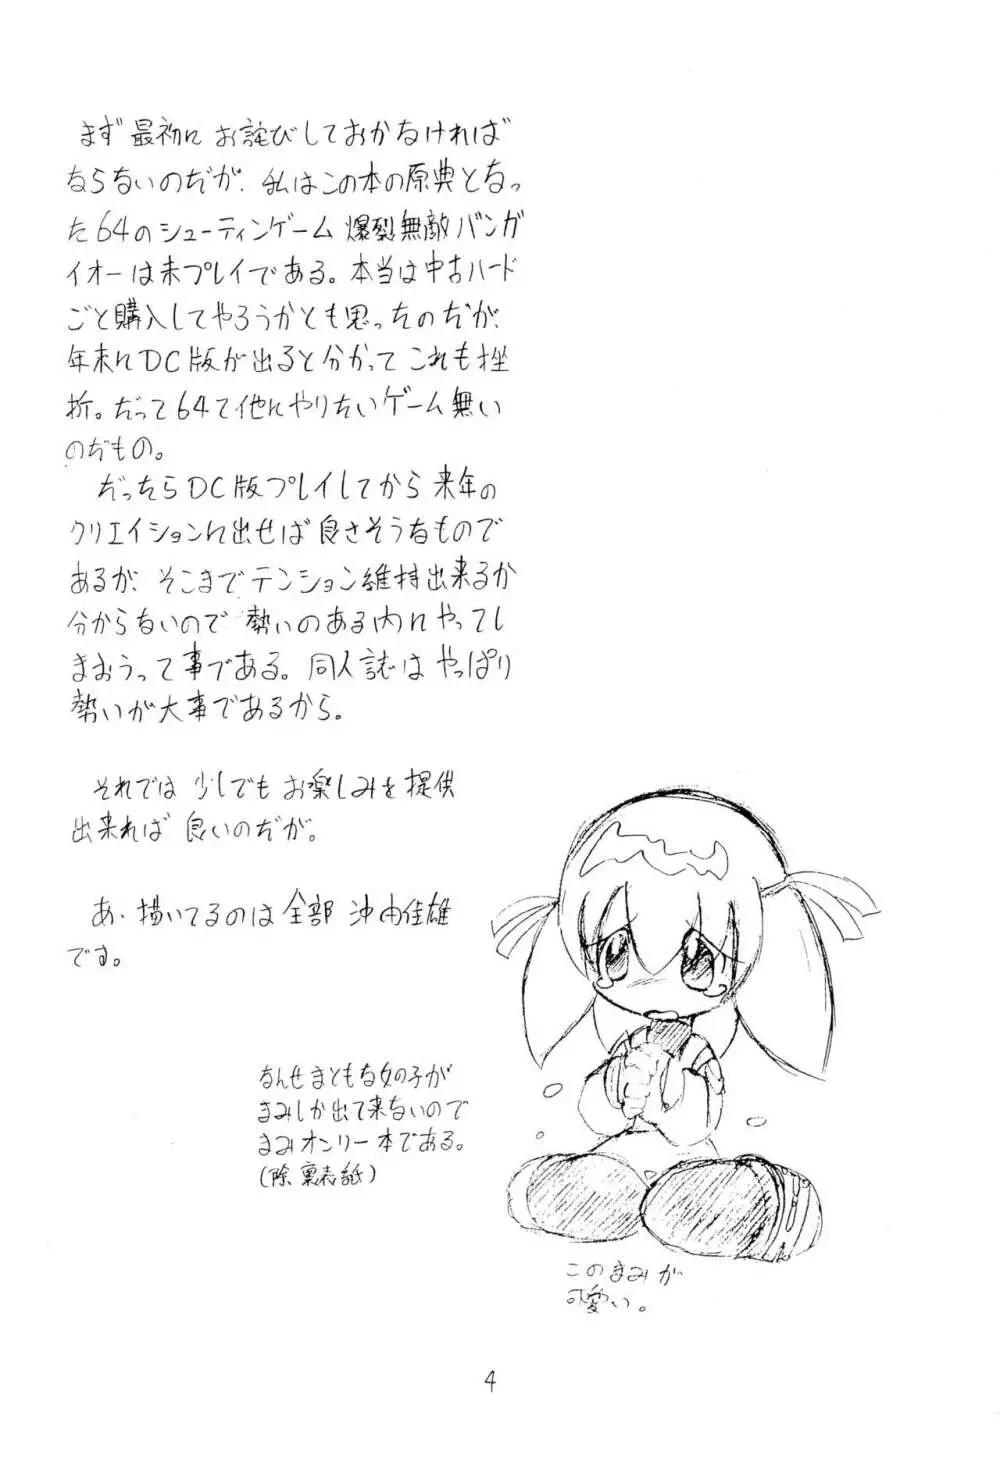 まず最初に お詫びしておかなければ
ならないのだが、私はこの本の原典となっ
た64のシューティンゲーム 爆裂無敵バンガ
イオーは未プレイである。本当は中古ハード
ごと購入してやろうかとも思ったのだが、
年末にDC版が出ると分かって これも挫
折。だって64で他にやりたいゲーム無い
のだもの。
だったらDC版プレイしてから 来年の
クリエイションに出せば 良さそうなもので
あるが、そこまでテンション維持出来るか
分からないので 勢いのある内に やってし
まおうって事である。同人誌は やっぱり
勢いが大事であるから。
それでは 少しでも お楽しみを提供
出来れば 良いのだが。
あ、描いてるのは 全部 沖由佳雄
です。
なんせまともな女の子が
まみしか出て来ないので
まみオンリー本である。
(除 裏表紙)
このまみが
可愛い。
4